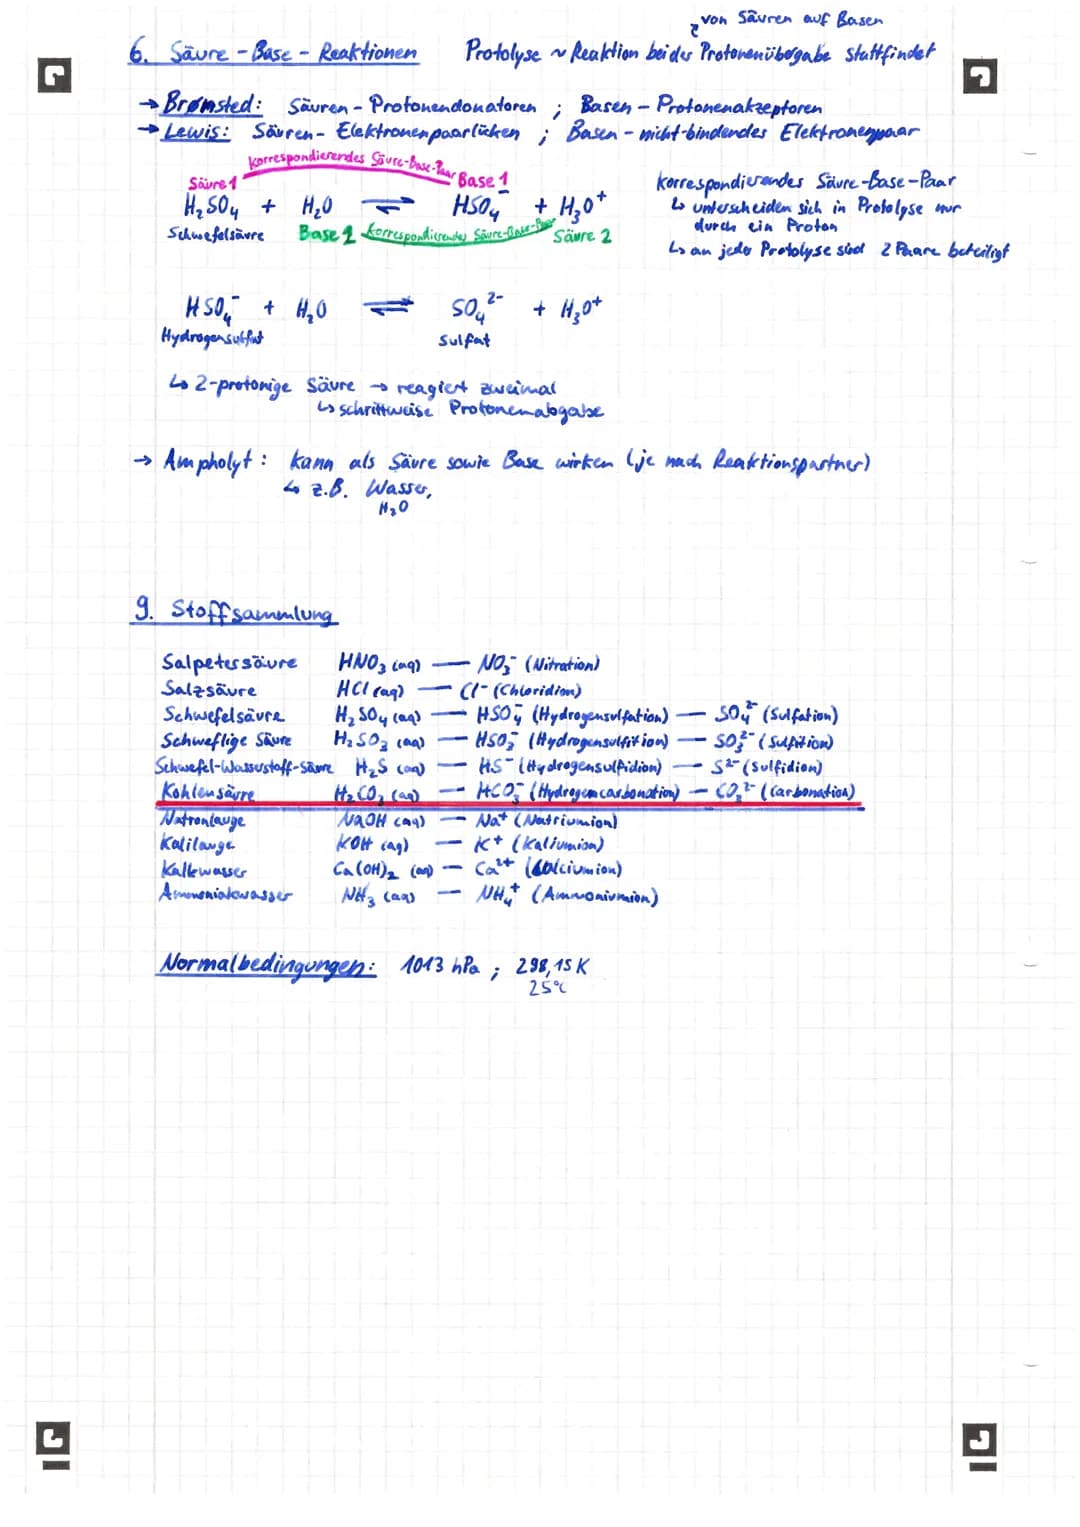 von Säuren auf Basen
6. Säure-Base-Reaktionen Protolyse ~ Reaktion bei der Protonenübergabe stattfindet
→ Brønsted: Säuren - Protonendonatoren ; Basen - Protonenakzeptoren
→ Lewis: Säuren - Elektronenpaarlücken ; Basen - nicht-bindendes Elektronenpaar
korrespondierendes Säure-Base-Paar
Säure 1 Base 1
H₂SO₄ + H₂O ⇌ HSO₄⁻ + H₃O⁺
Schwefelsäure Base 2 korrespondierendes Säure-Base-Paar Säure 2
korrespondierendes Säure-Base-Paar
↳ unterscheiden sich in Protolyse nur
durch ein Proton
↳ an jeder Protolyse sind 2 Paare beteiligt
HSO₄⁻ + H₂O ⇌ SO₄²⁻ + H₃O⁺
Hydrogensulfat Sulfat
↳ 2-protonige Säure → reagiert zweimal
↳ schrittweise Protonenabgabe
→ Ampholyt: kann als Säure sowie Base wirken (je nach Reaktionspartner)
↳ z.B. Wasser,
H₂O
9. Stoffsammlung
Salpetersäure HNO₃ (aq) — NO₃⁻ (Nitration)
Salzsäure HCl (aq) — Cl⁻ (Chloridion)
Schwefelsäure H₂SO₄ (aq) — HSO₄⁻ (Hydrogensulfation) — SO₄²⁻ (Sulfation)
Schweflige Säure H₂SO₃ (aq) — HSO₃⁻ (Hydrogensulfition) — SO₃²⁻ (Sulfition)
Schwefel-Wasserstoff-Säure H₂S (aq) — HS⁻ (Hydrogensulfidion) — S²⁻ (Sulfidion)
Kohlensäure H₂CO₃ (aq) — HCO₃⁻ (Hydrogencarbonation) — CO₃²⁻ (Carbonation)
Natronlauge NaOH (aq) — Na⁺ (Natriumion)
Kalilauge KOH (aq) — K⁺ (Kaliumion)
Kalkwasser Ca(OH)₂ (aq) — Ca²⁺ (Calciumion)
Ammoniakwasser NH₃ (aq) — NH₄⁺ (Ammoniumion)
Normalbedingungen: 1013 hPa ; 298,15 K
25°C